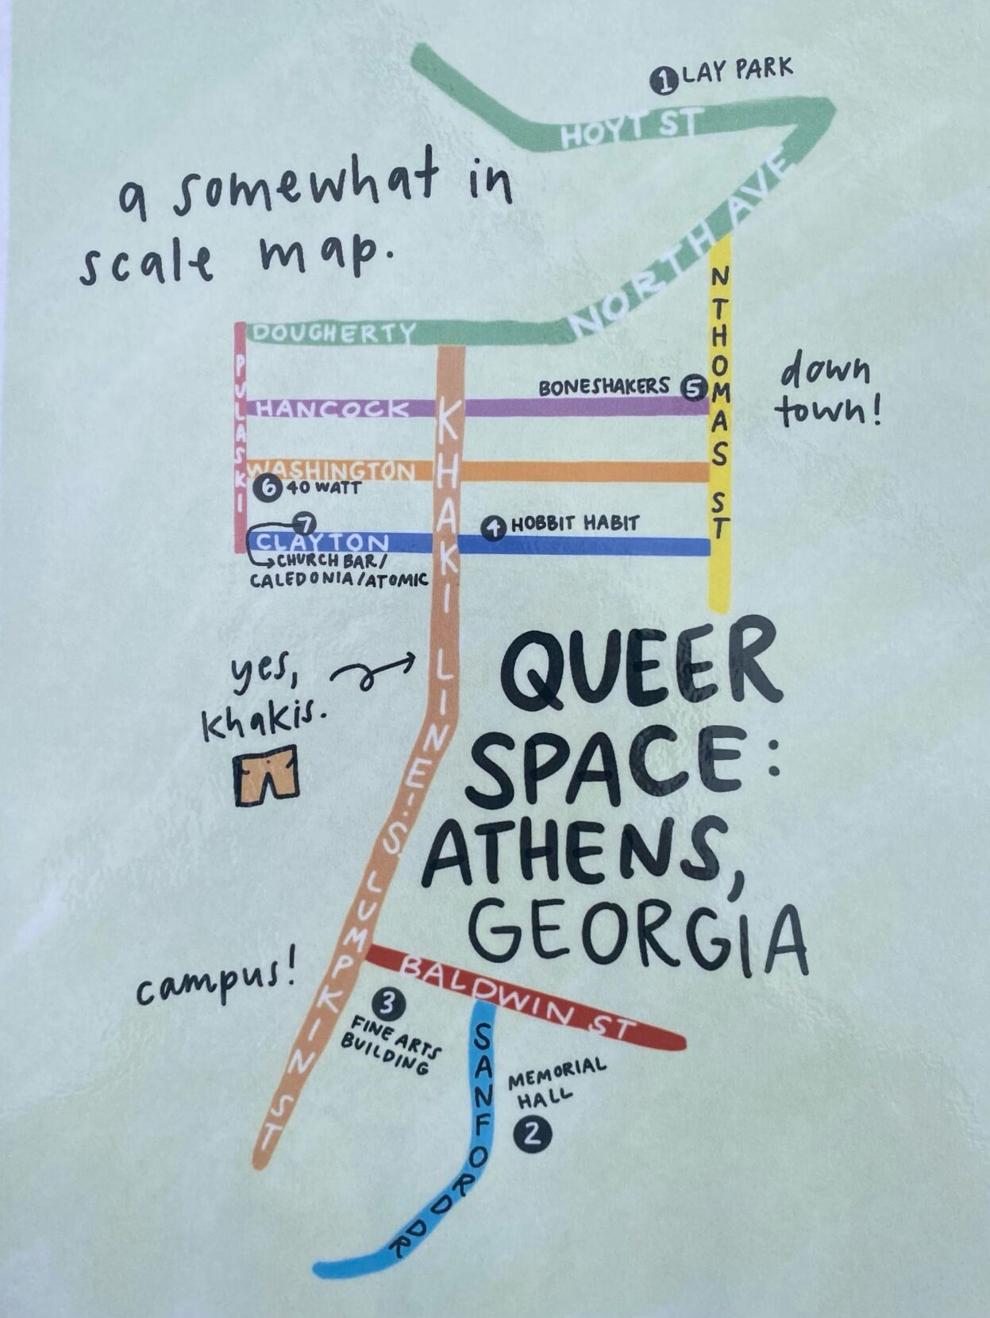 1 LAY PARK
HOYT ST
a somewhat in
scale map.
NORTH AVE
DOUGHERTY
N THOMAS ST
PULASKI
down
town!
BONESHAKERS 5
HANCOCK
WASHINGTON
6 40 WATT
7
CLAYTON
4 HOBBIT HABIT
CHURCH BAR/
CALEDONIA/ATOMIC
KHAKI LINE: S LUMPKIN ST
yes,
khakis.
QUEER
SPACE:
ATHENS,
GEORGIA
campus!
BALDWIN ST
3
FINE ARTS
BUILDING
SANFORD DR
MEMORIAL
HALL
2